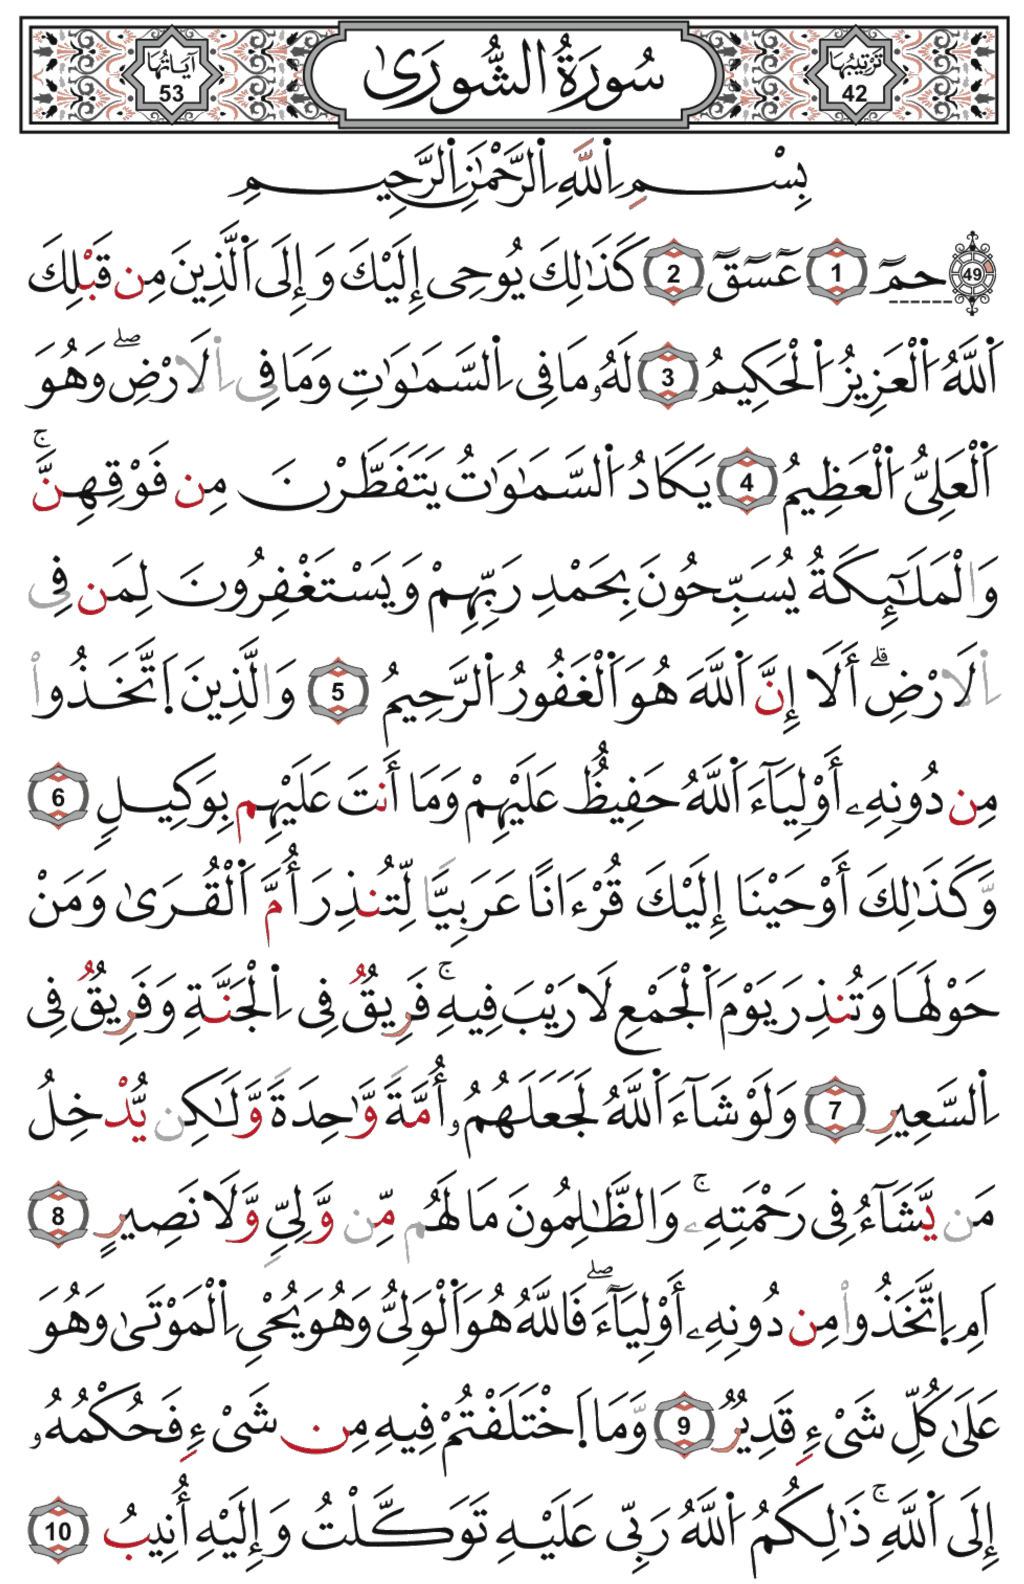 تَرْتِيبُهَا 42 سُورَةُ الشُّورَىٰ آيَاتُهَا 53
بِسْمِ اِ۬للَّهِ اِ۬لرَّحْمَٰنِ اِ۬لرَّحِيمِ
49 حمٓ 1 عٓسٓقٓ 2 كَذَٰلِكَ يُوحِى إِلَيْكَ وَإِلَى اَ۬لَّذِينَ مِن قَبْلِكَ
اَ۬للَّهُ اُ۬لْعَزِيزُ اُ۬لْحَكِيمُ 3 لَهُۥ مَا فِى اِ۬لسَّمَٰوَٰتِ وَمَا فِى اِ۬لَارْضِۖ وَهُوَ
اَ۬لْعَلِىُّ اُ۬لْعَظِيمُ 4 يَكَادُ اُ۬لسَّمَٰوَٰتُ يَتَفَطَّرْنَ مِن فَوْقِهِنَّۚ
وَالْمَلَٰٓئِكَةُ يُسَبِّحُونَ بِحَمْدِ رَبِّهِمْ وَيَسْتَغْفِرُونَ لِمَن فِى
اِ۬لَارْضِۗ أَلَا إِنَّ اَ۬للَّهَ هُوَ اَ۬لْغَفُورُ اُ۬لرَّحِيمُ 5 وَالَّذِينَ اَ۪تَّخَذُواْ
مِن دُونِهِۦ أَوْلِيَآءَ اَ۬للَّهُ حَفِيظٌ عَلَيْهِمْ وَمَا أَنتَ عَلَيْهِم بِوَكِيلٍ 6
وَكَذَٰلِكَ أَوْحَيْنَا إِلَيْكَ قُرْءَانًا عَرَبِيًّا لِّتُنذِرَ أُمَّ اَ۬لْقُرَىٰ وَمَنْ
حَوْلَهَا وَتُنذِرَ يَوْمَ اَ۬لْجَمْعِ لَا رَيْبَ فِيهِۚ فَرِيقٌ فِى اِ۬لْجَنَّةِ وَفَرِيقٌ فِى
اِ۬لسَّعِيرِ 7 وَلَوْ شَآءَ اَ۬للَّهُ لَجَعَلَهُمُۥ أُمَّةً وَّٰحِدَةً وَّلَٰكِن يُّدْخِلُ
مَن يَّشَآءُ فِى رَحْمَتِهِۦۚ وَالظَّٰلِمُونَ مَا لَهُم مِّن وَّلِىٍّ وَّلَا نَصِيرٍ 8
اَمِ اِ۪تَّخَذُواْ مِن دُونِهِۦ أَوْلِيَآءَۖ فَاللَّهُ هُوَ اَ۬لْوَلِىُّ وَهُوَ يُحْىِ اِ۬لْمَوْتَىٰ وَهُوَ
عَلَىٰ كُلِّ شَىْءٍ قَدِيرٌ 9 وَّمَا اَ۪خْتَلَفْتُمْ فِيهِ مِن شَىْءٍ فَحُكْمُهُۥ
إِلَى اَ۬للَّهِۚ ذَٰلِكُمُ اُ۬للَّهُ رَبِّى عَلَيْهِ تَوَكَّلْتُ وَإِلَيْهِ أُنِيبُ 10